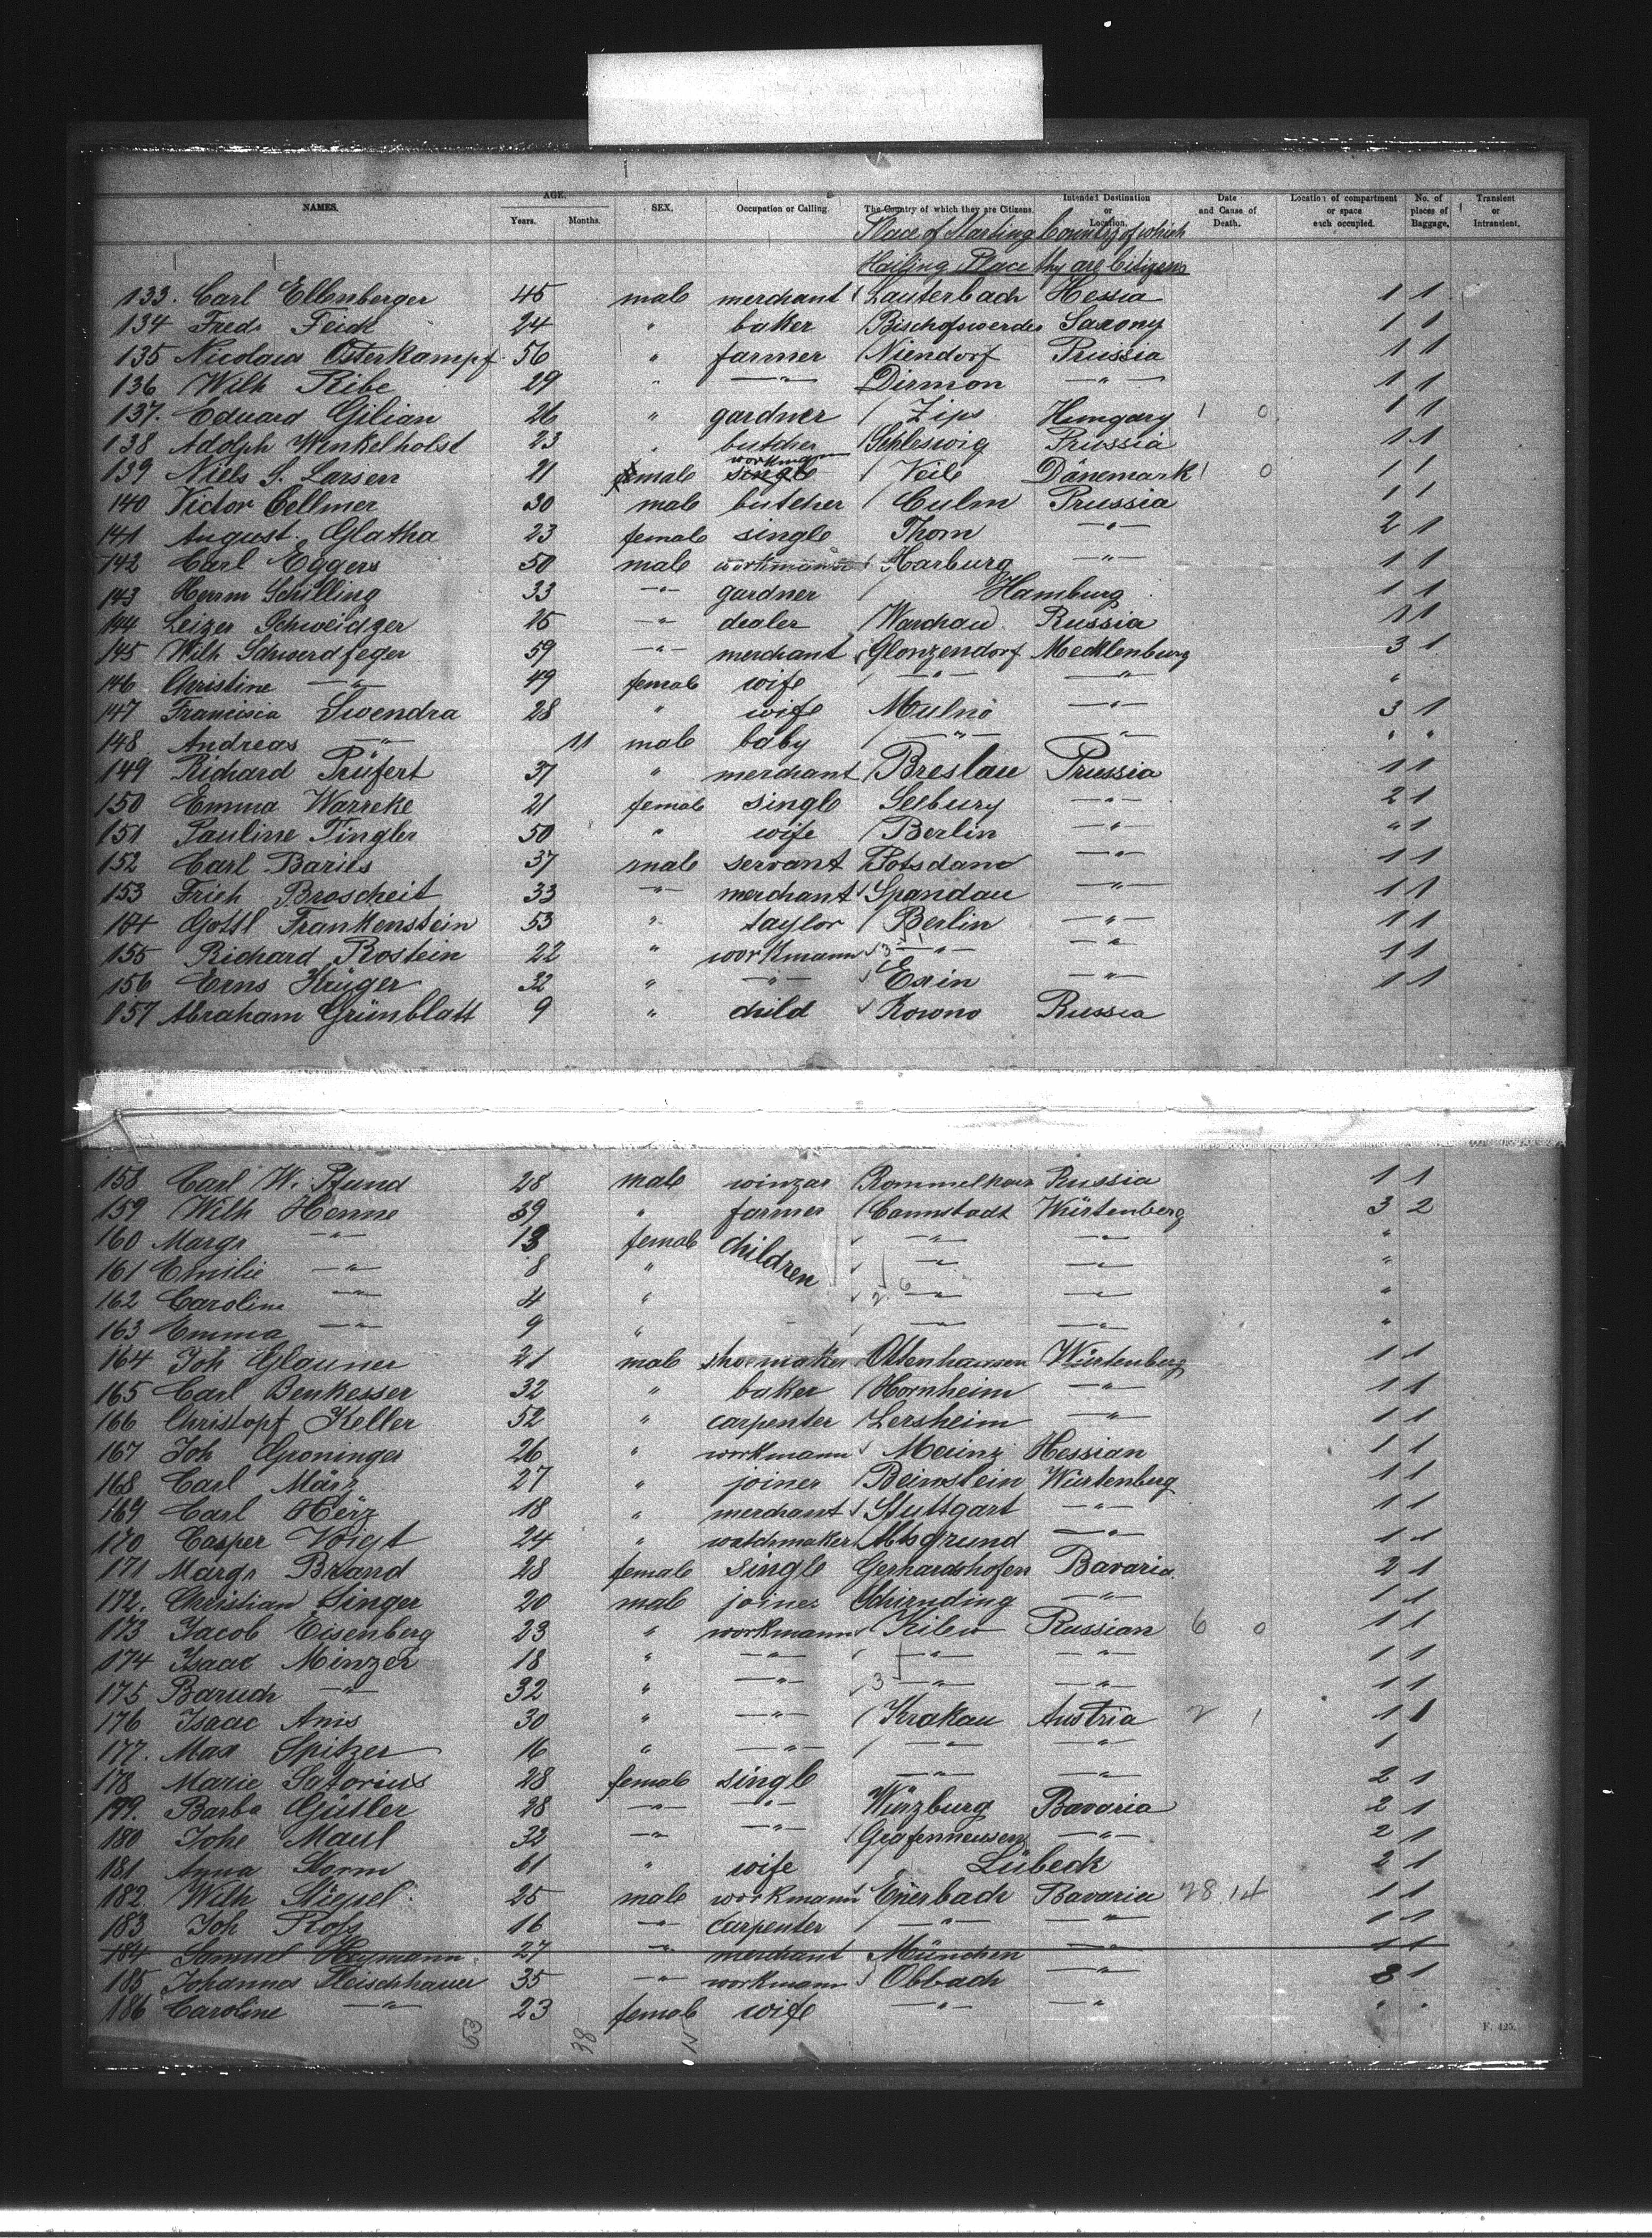 NAMES. AGE. Years. Months. SEX. Occupation or Calling. The Country of which they are Citizens. Intended Destination or Location. Date and Cause of Death. Location of compartment or space each occupied. No. of pieces of Baggage. Transient or Intransient.
Place of Starting Country of which
Hailing Place thy are Citizens
133. Carl Ellenberger 45 male merchant Lauterbach Hessia 1 1
134 Fredr Feick 24 " baker Bischofswerder Saxony 1 1
135 Nicolaus Osterkampf 56 " farmer Niendorf Prussia 1 1
136 Wilh Ribe 29 " —"— Dirmon —"— 1 1
137. Eduard Gilian 26 " gardner Zips Hungary 1 0 1 1
138 Adolph Winkelholst 23 " butcher Schleswig Prussia 1 1
139 Niels S. Larsen 21 male workmann single Veile Dänemark 1 0 1 1
140 Victor Cellmer 30 male butcher Culm Prussia 1 1
141 August Glatha 23 female single Thorn —"— 2 1
142 Carl Eggers 50 male workmann Harburg —"— 1 1
143 Herrm Schilling 33 —"— gardner Hamburg 1 1
144 Leizer Schweidzer 25 —"— dealer Warchau Russia 1 1
145 Wilh Schwerdfeger 59 —"— merchant Glonzendorf Mecklenburg 3 1
146 Christine —"— 49 female wife —"— —"— "
147 Francisca Swendra 28 " wife Mulno —"— 3 1
148 Andreas —"— 11 male baby —"— —"— " "
149 Richard Prüfert 37 " merchant Breslau Prussia 1 1
150 Emma Warreke 21 female single Seeburg —"— 2 1
151 Pauline Tingler 50 " wife Berlin —"— " 1
152 Carl Barius 37 male servant Potsdam —"— 1 1
153 Frieh Broscheit 33 —"— merchant Spandau —"— 1 1
154 Gottl Frankenstein 53 " taylor Berlin —"— 1 1
155 Richard Rostein 22 " workmann 3 —"— —"— 1 1
156 Erns Krüger 32 " —"— Exin —"— 1 1
157 Abraham Grünblatt 9 " child Kowno Russia
158 Carl W. Pfund 28 male winzar Russia 1 1
159 Wilh Henne 39 " farmer Cannstadt Würtenberg 3 2
160 Margr —"— 13 female children —"— —"— "
161 Emilie —"— 8 " —"— —"— "
162 Caroline —"— 4 " 2 6 —"— —"— "
163 Emma —"— 9 " —"— —"— "
164 Joh Glauner 21 male shoemaker Ottenhausen Würtenberg 1 1
165 Carl Benkesser 32 " baker Hornheim —"— 1 1
166 Christopf Keller 52 " carpenter Lersheim —"— 1 1
167 Joh Groninger 26 " workmann Meinz Hessian 1 1
168 Carl März 27 " joiner Beinstein Würtenberg 1 1
169 Carl Herz 18 " merchant Stuttgart —"— 1 1
170 Casper Voigt 24 " watchmaker Altsgrund —"— 1 1
171 Margr Brand 28 female single Gerhardshofen Bavaria. 2 1
172. Christian Singer 20 male joiner Schirnding —"— 1 1
173 Jacob Eisenberg 23 " workmann Kilew Russian 6 0 1 1
174 Isaac Minzer 18 " —"— —"— —"— 1 1
175 Baruch —"— 32 " —"— 3 —"— —"— 1 1
176 Isaac Anis 30 " —"— Krakau Austria 2 1 1 1
177. Max Spitzer 16 " —"— —"— —"— 1
178 Marie Satorius 28 female single —"— —"— 2 1
179. Barba Güsler 28 —"— —"— Würzburg Bavaria 2 1
180 Johe Maul 32 —"— —"— —"— 2 1
181 Anna Storm 61 " wife Lübeck 2 1
182 Wilh Stiepel 25 male workmann Enerbach Bavaria 28 14 1 1
183 Joh Rofs 16 —"— carpenter —"— —"— 1 1
184 Samuel Heymann 27 —"— merchant München —"— 1 1
185 Johannes Fleischhauer 35 —"— workmann Obbach —"— 3 1
186 Caroline —"— 23 female wife —"— —"— " "
53 38 15
F. 425.